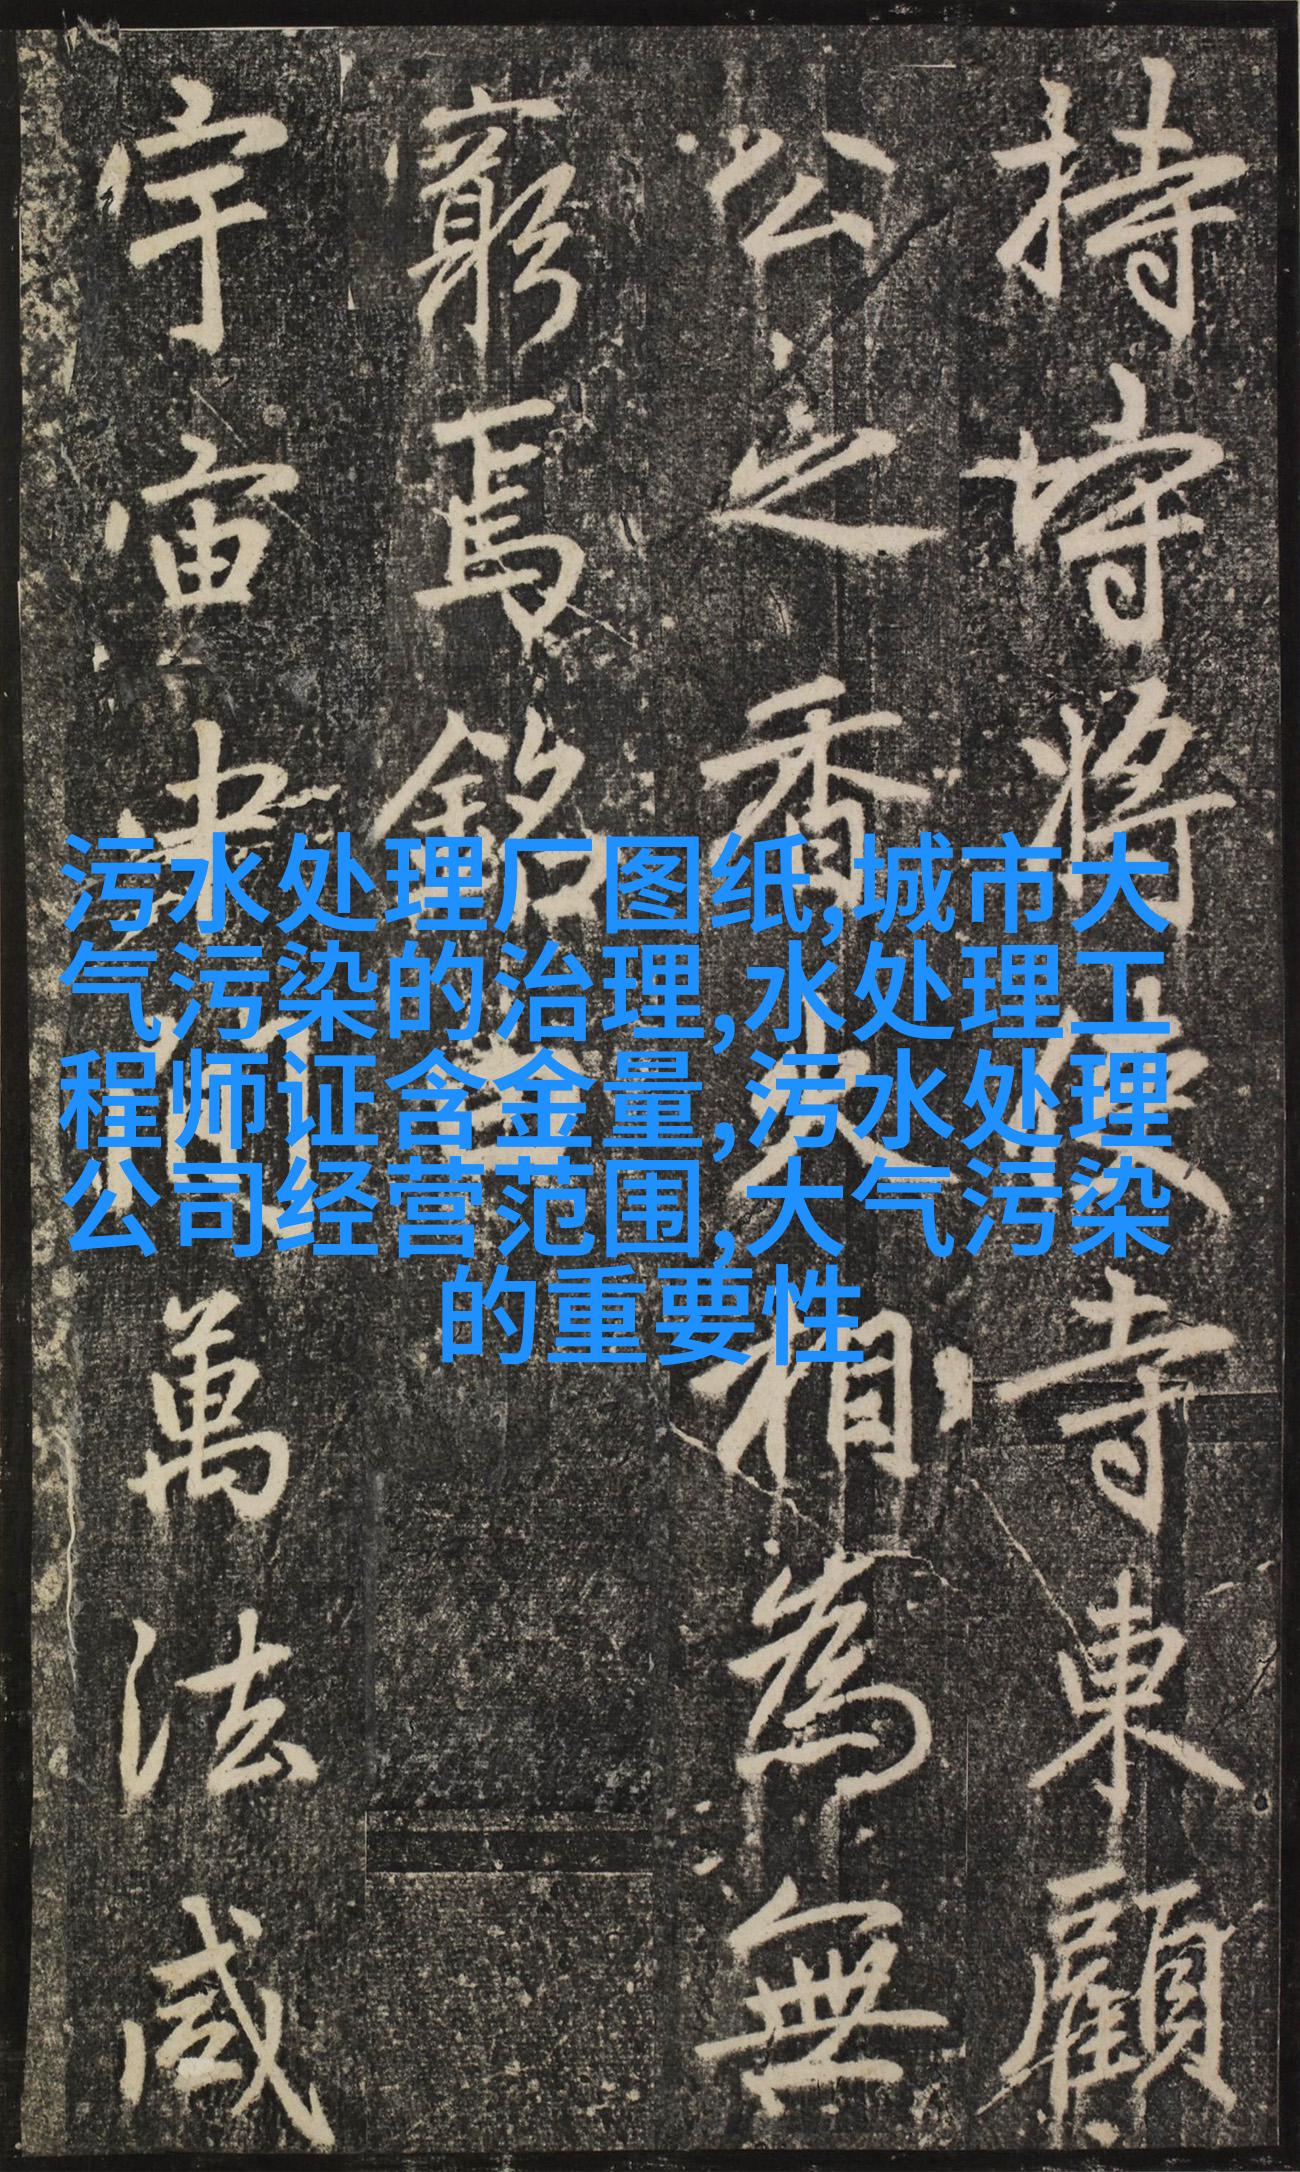 持將寺東顧
公之香火相為無
窮焉銘曰
宇宙萬法咸
污水处理厂图纸,城市大
气污染的治理,水处理工
程师证含金量,污水处理
公司经营范围,大气污染
的重要性